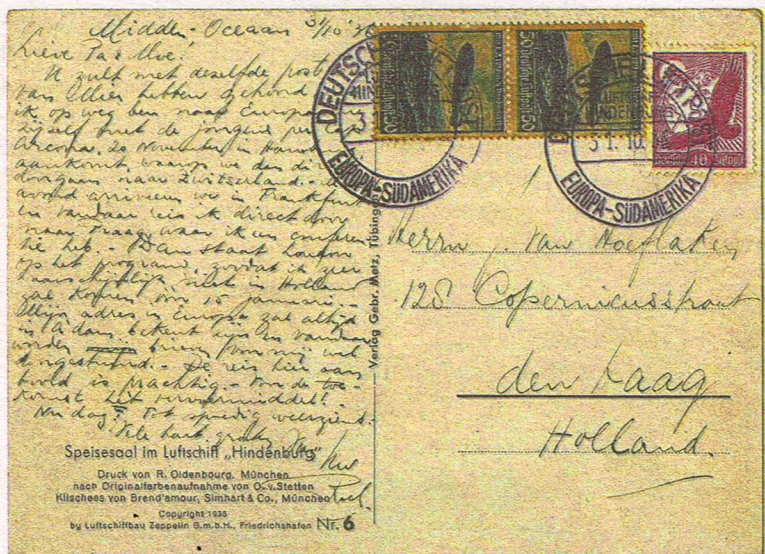 Midden-Oceaan 31/10 '36
Lieve Pa & Moe!
U zult met dezelfde post
van Ellies hebben gehoord
ik op weg ben naar Europa
zijzelf met de jongens per
Arcona. 20 November in
aankomt, waarop we dan
doorgaan naar Zwitserland.-
avond arriveren we in Frankfurt
en vandaar reis ik direct door
naar Praag, waar ik een conferen-
tie heb. - Dan staat Londen
op het program, zoodat ik zeer
waarschijnlijk niet in Holland
zal komen vóór 15 januari.-
Mijn adres in Europa zal altijd
in A'dam bekend zijn en vandaar
worden brieven voor mij wel
doorgestuurd. - De reis hier aan
boord is prachtig. - Van de toe-
komst het vervoermiddel! -
Nu dag! Tot spoedig weerziens.
Vele hart. groeten
Speisesaal im Luftschiff „Hindenburg"
Druck von R. Oldenbourg, München
nach Originalfarbenaufnahme von O. v. Stetten
Klischees von Brend'amour, Simhart & Co., München
Copyright 1936
by Luftschiffbau Zeppelin G.m.b.H., Friedrichshafen Nr. 6
Verlag Gebr. Metz, Tübingen
DEUTSCHE
EUROPA-SÜDAMERIKA
50 50
DEUTSCHE
31.10.
EUROPA-SÜDAMERIKA
40
Herrn J. van Hoeflaken
128 Copernicusstraat
den Haag
Holland.